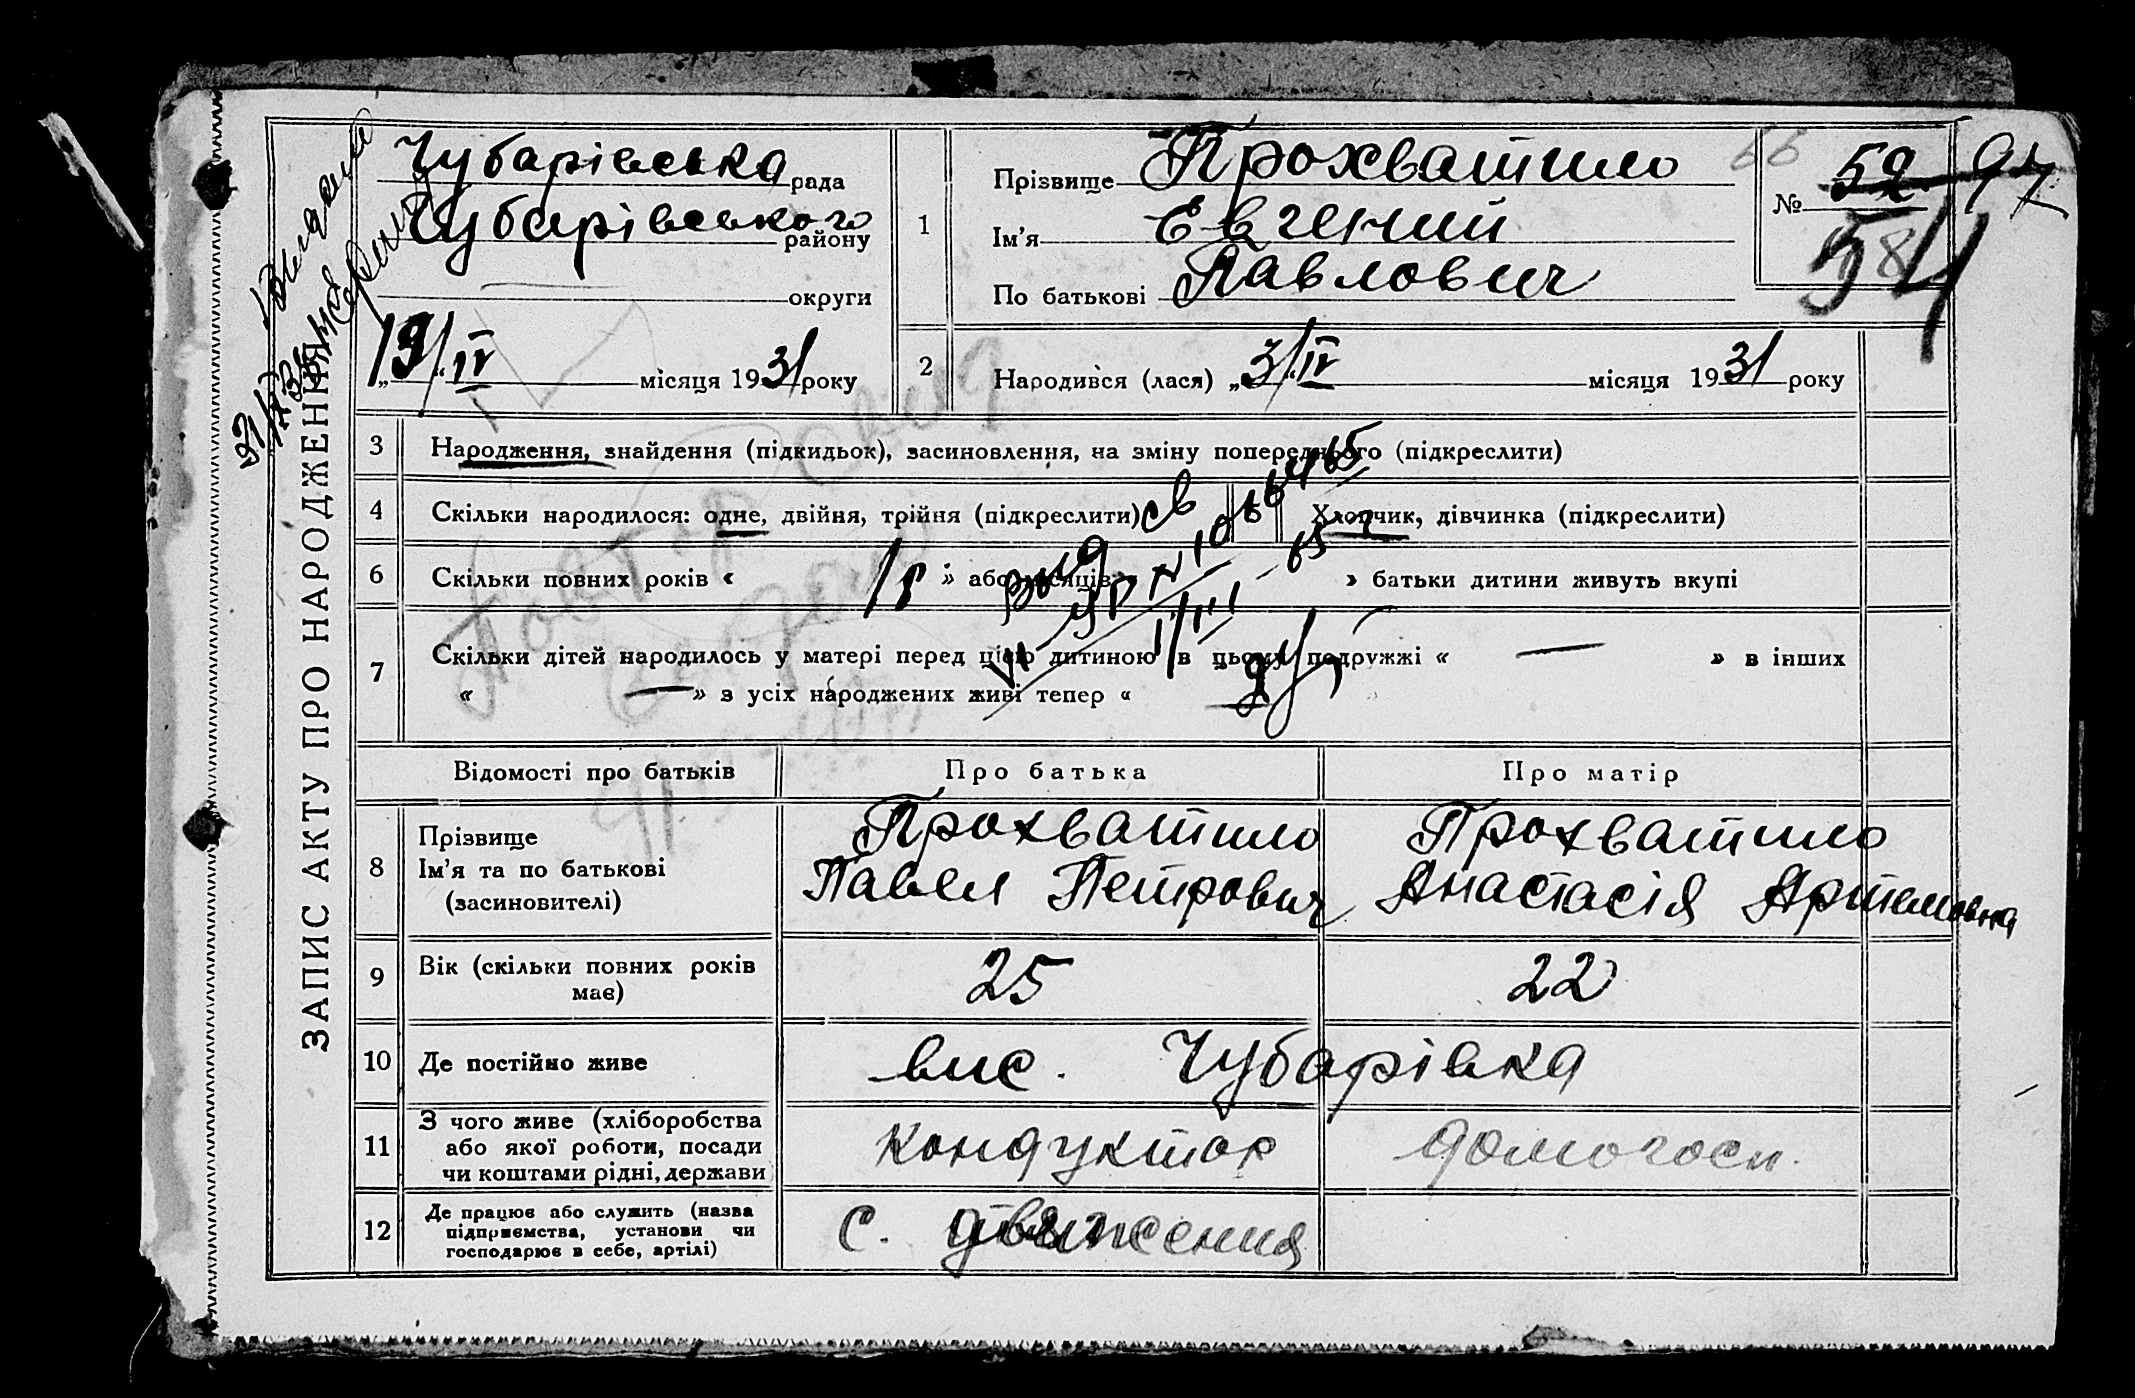 ЗАПИС АКТУ ПРО НАРОДЖЕННЯ
Чубарівська рада
Чубарівського району
округи
„19“ IV місяця 1931 року
1
Прізвище Прохватило
Ім'я Евгений
По батькові Павлович
№ 52
97
54
66
2
Народився (лася) „3“ IV місяця 1931 року
3 Народження, знайдення (підкидьок), засиновлення, на зміну попереднього (підкреслити)
4 Скільки народилося: одне, двійня, трійня (підкреслити)
5 Хлопчик, дівчинка (підкреслити)
6 Скільки повних років « 1 р » або місяців » батьки дитини живуть вкупі
7 Скільки дітей народилось у матері перед цією дитиною в цьому подружжі « — » в інших
« — » з усіх народжених живі тепер «
Повтор
Відомості про батьків
Про батька
Про матір
8 Прізвище
Ім'я та по батькові
(засиновителі)
Прохватило
Павел Петрович
Прохватило
Анастасія Артемовна
9 Вік (скільки повних років має)
25
22
10 Де постійно живе
вис. Чубарівка
11 З чого живе (хліборобства
або якої роботи, посади
чи коштами рідні, держави
кондуктор
домогосп.
12 Де працює або служить (назва
підприємства, установи чи
господарює в себе, артілі)
С. движения